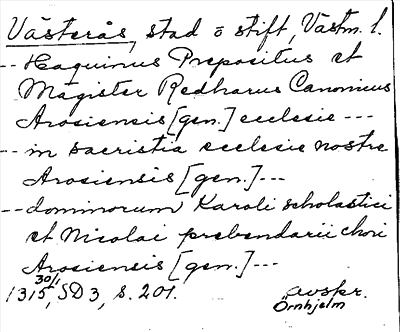 Västerås, stad o stift, Västm. l.
-- Haquinus Prepositus et
Magister Redharus Canonicus
Arosiensis [gen.] ecclesie ---
-- in sacristia ecclesie nostre
Arosiensis [gen.] ---
-- dominorum Karoli scholastici
et Nicolai prebendarii chori
Arosiensis [gen.] ---
1315 30/1, SD 3, s. 201. avskr.
Örnhjelm